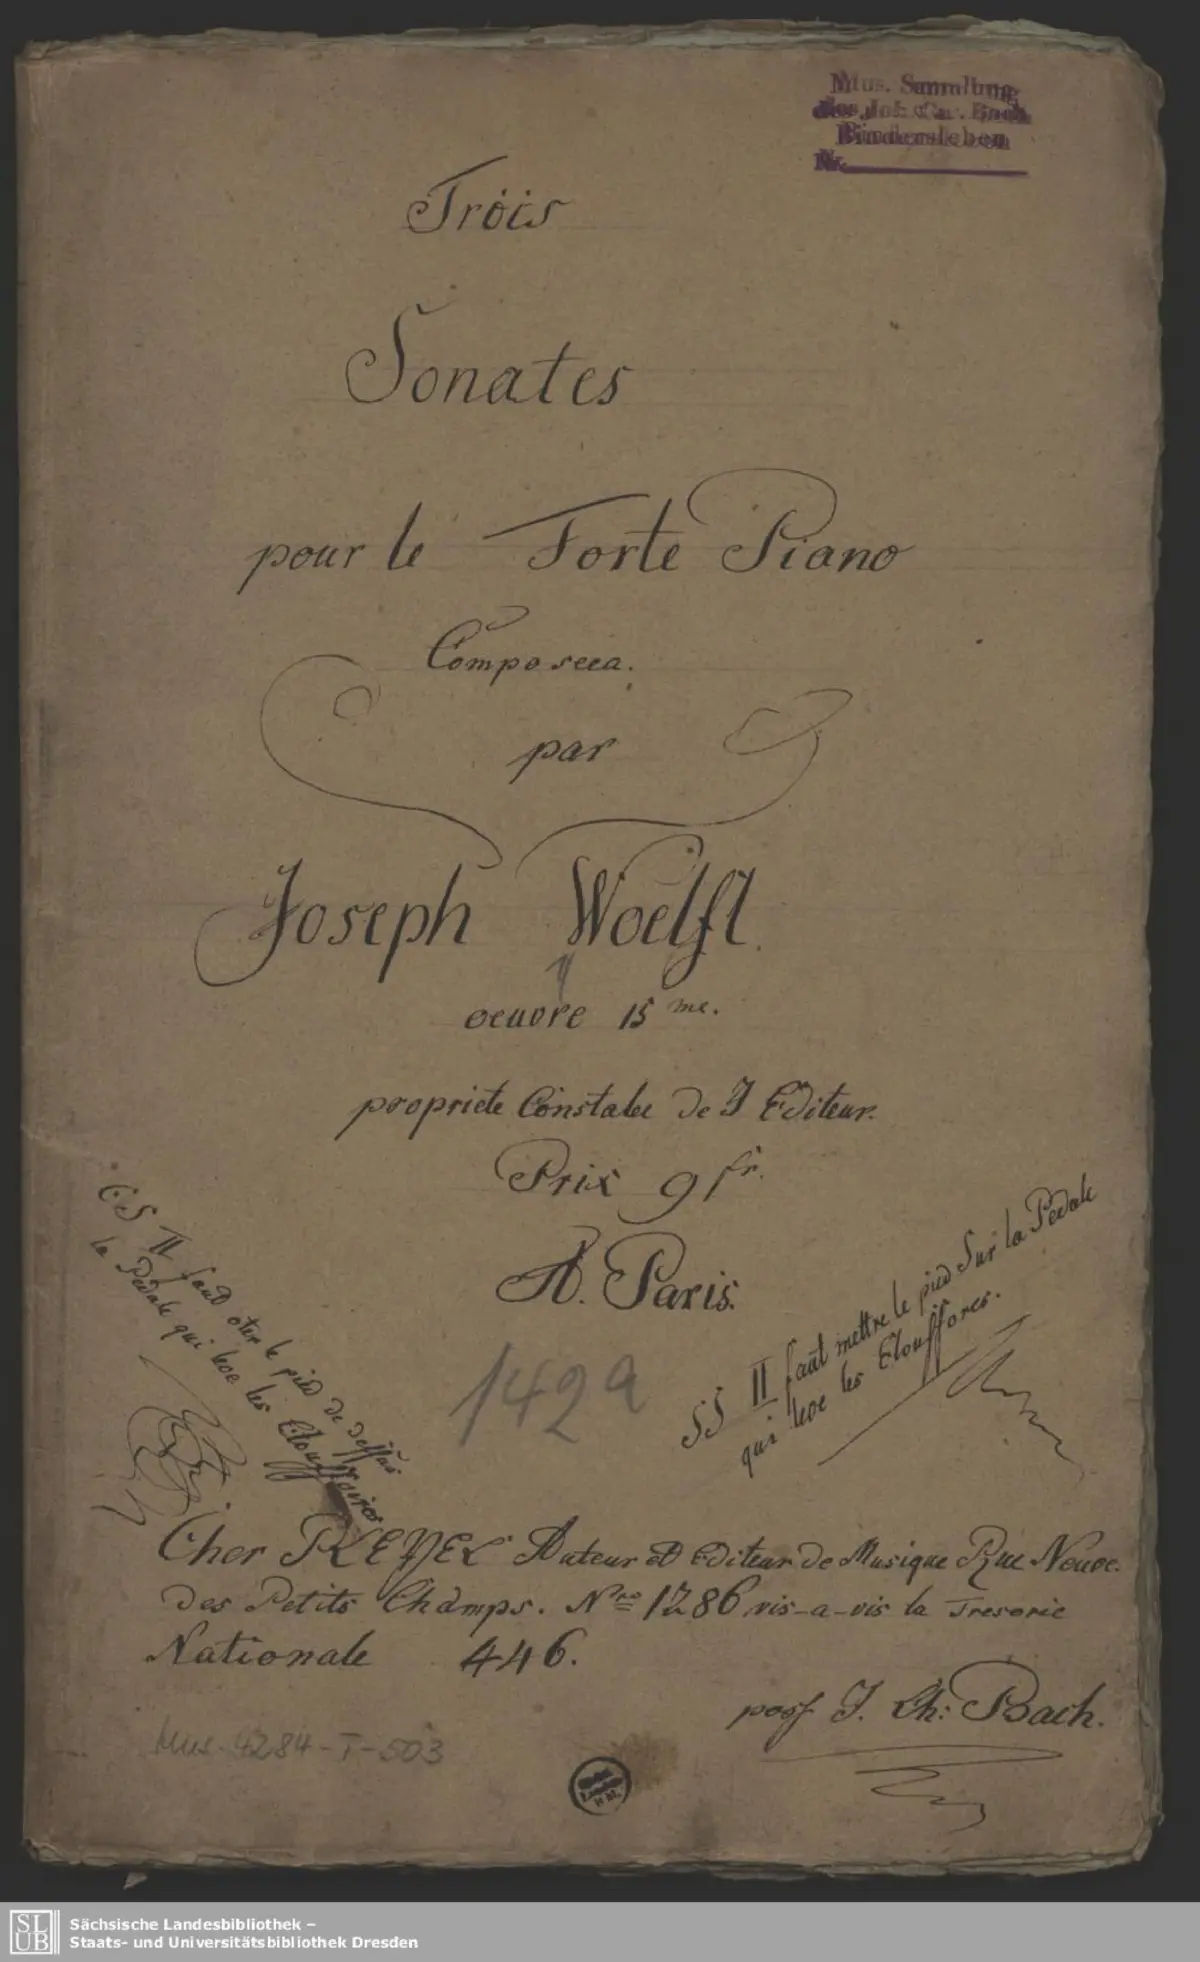 Mus. Sammlung
des Joh. Chr. Bach
Bindersleben
Nr.
Trois
Sonates
pour le Forte Piano
Composeea.
par
Joseph Woelfl.
oeuvre 15 me.
propriete Constatee de J Editeur.
Prix 9 fr.
A. Paris.
CS II faud oter le pied de dessus
la Pedale qui leve les Etouffoires
SS II faut mettre le pied Sur la Pedale
qui leve les Etouffores.
142a
Cher PLEYEL Auteur et Editeur de Musique Rue Neuve.
des Petits Champs. Nro 1286 vis-a-vis la Tresorie
Nationale 446.
poss J. Ch: Bach.
Mus. 4284-T-503
SLUB
Sächsische Landesbibliothek –
Staats- und Universitätsbibliothek Dresden